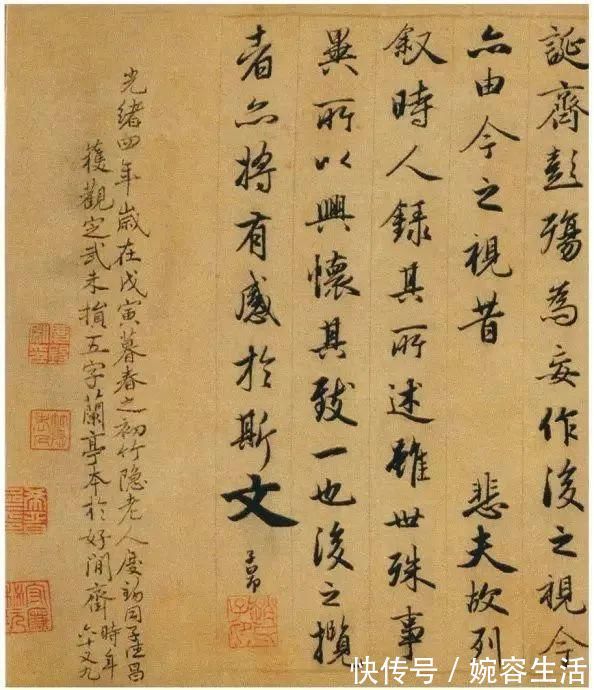 誕齊彭殤為妄作後之視今
亦由今之視昔 悲夫故列
叙時人錄其所述雖世殊事
異所以興懷其致一也後之攬
者亦將有感於斯文
子昂
趙氏子昂
光緒四年歲在戊寅暮春之初竹隐老人慶同子昌
獲觀定武未損五字蘭亭本於好閒齋時年
六十又九
快传号/婉容生活